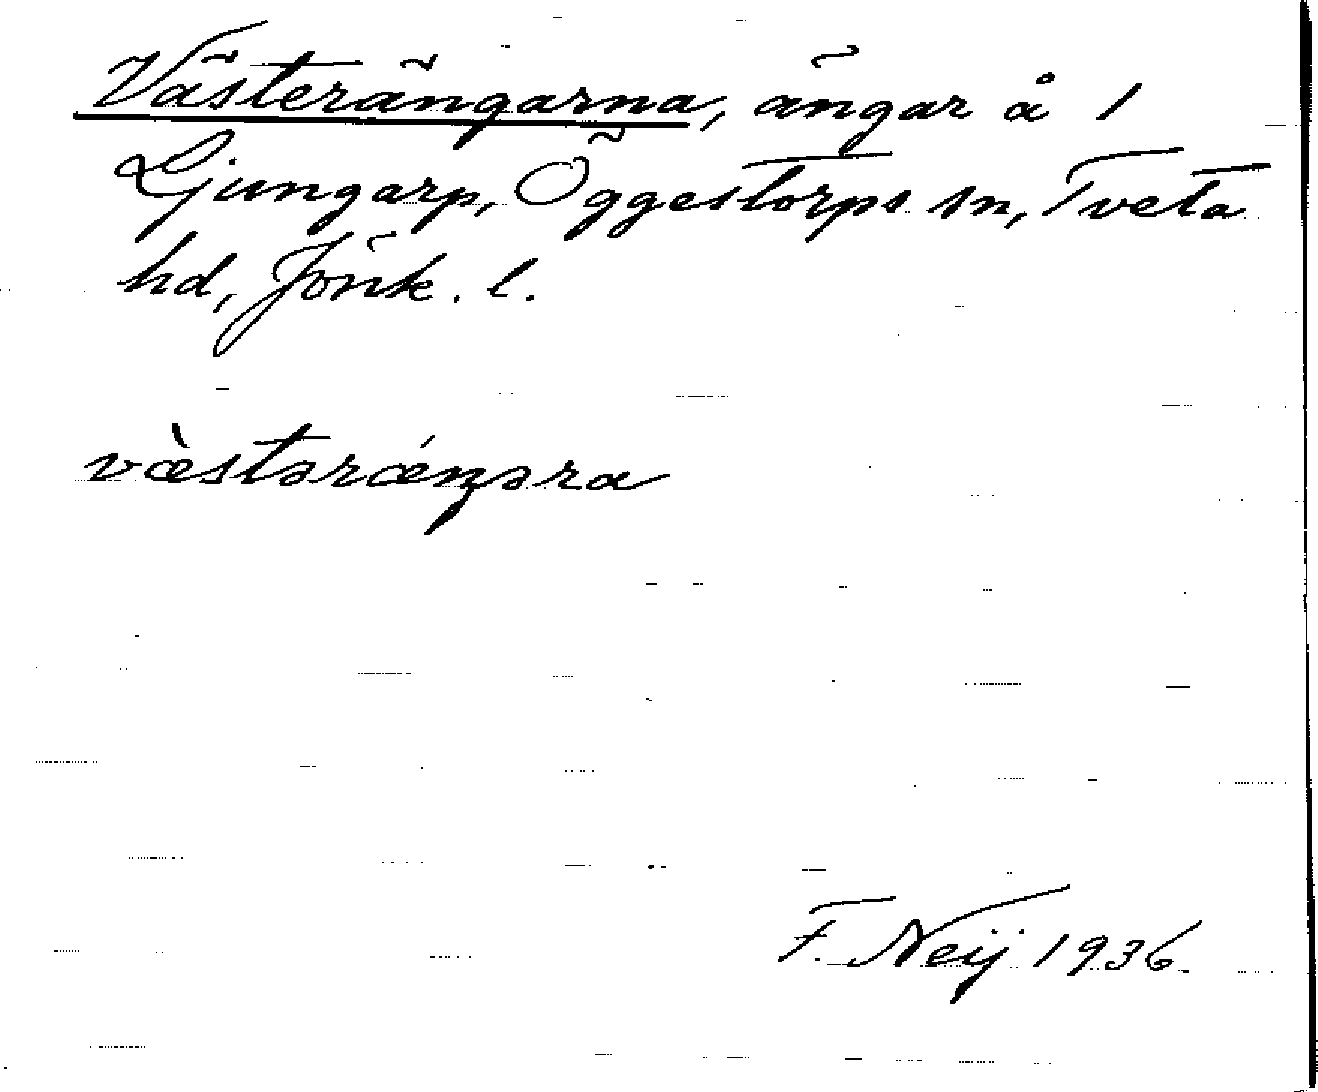 Västerängarna, ängar å 1
Ljungarp, Öggestorps sn, Tveta
hd, Jönk. l.
væ̀stərǽŋəra
F. Neij 1936.